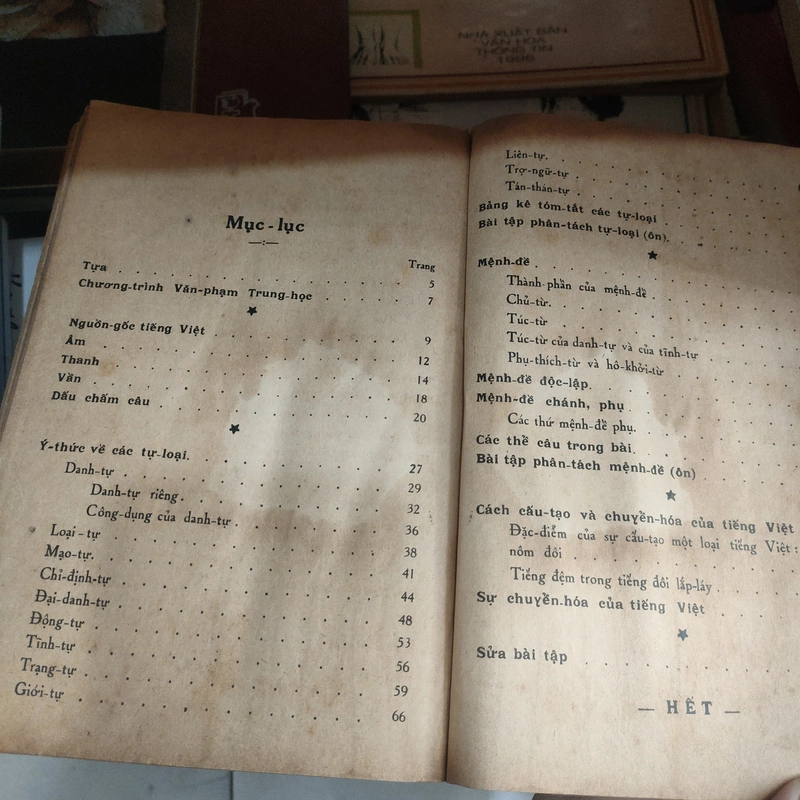 NHÀ XUẤT BẢN
VĂN HÓA
THÔNG TIN
1996
Mục - lục
Trang
Tựa . . . . . . . . . . . . 5
Chương-trình Văn-phạm Trung-học . . . . . 7
Nguồn-gốc tiếng Việt . . . . . . . . . 9
Âm . . . . . . . . . . . . 12
Thanh . . . . . . . . . . . . 14
Vần . . . . . . . . . . . . 18
Dấu chấm câu . . . . . . . . . . 20
Ý-thức về các tự-loại. . . . . . . . . 27
Danh-tự . . . . . . . . . . . 29
Danh-tự riêng. . . . . . . . . 32
Công-dụng của danh-tự . . . . . . 36
Loại - tự . . . . . . . . . . . 38
Mạo-tự. . . . . . . . . . . . 41
Chỉ-định-tự . . . . . . . . . . 44
Đại-danh-tự . . . . . . . . . . 48
Động-tự . . . . . . . . . . . 53
Tĩnh-tự . . . . . . . . . . . 56
Trạng-tự . . . . . . . . . . . 59
Giới-tự . . . . . . . . . . . 66
Liên-tự. . . . . . . . .
Trợ-ngữ-tự . . . . . . . .
Tán-thán-tự . . . . . . . .
Bảng kê tóm-tắt các tự-loại . . . . .
Bài tập phân-tách tự-loại (ôn). . . . .
Mệnh-đề . . . . . . . . . .
Thành-phần của mệnh-đề . . . . .
Chủ-từ. . . . . . . . .
Túc-từ . . . . . . . . .
Túc-từ của danh-tự và của tĩnh-tự . . .
Phụ-thích-từ và hô-khởi-từ
Mệnh-đề độc-lập. . . . . . . .
Mệnh-đề chánh, phụ . . . . . . .
Các thứ mệnh-đề phụ. . . . . .
Các thể câu trong bài. . . . . . .
Bài tập phân-tách mệnh-đề (ôn) . . . .
Cách cấu-tạo và chuyển-hóa của tiếng Việt
Đặc-điểm của sự cấu-tạo một loại tiếng Việt :
nôm đôi . . . . . . . . .
Tiếng đệm trong tiếng đôi lắp-láy . . .
Sự chuyển-hóa của tiếng Việt . . . . .
Sửa bài tập . . . . . . . . .
— HẾT —